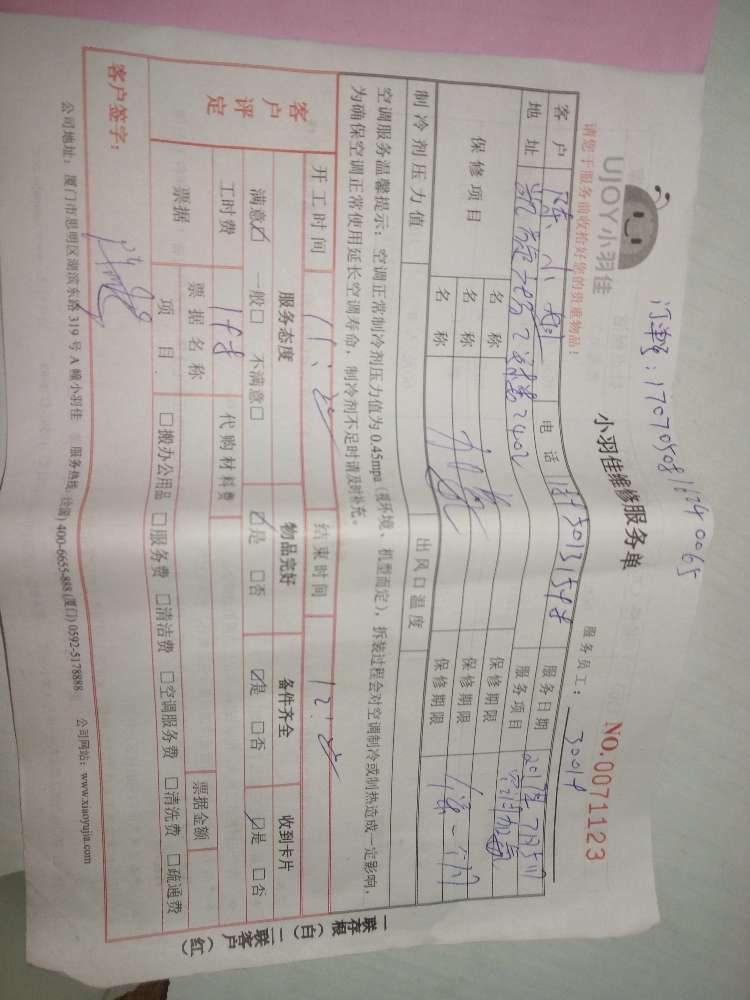 UJOY小羽佳
小羽佳维修服务单
NO.0071123
请您于服务前收拾好您的贵重物品!
服务员工: 30014
客户 陈小姐 电话 服务日期 2017年7月5日
地址 2402 服务项目 空调加氨
保修项目 名称 加氨 保修期限 保一个月
名称 保修期限
名称 保修期限
制冷剂压力值 出风口温度
空调服务温馨提示:空调正常制冷剂压力值为0.45mpa(视环境、机型而定),拆装过程会对空调制冷或制热造成一定影响,
为确保空调正常使用延长空调寿命,制冷剂不足时请及时补充。
客户评定
开工时间 结束时间
服务态度 物品完好 备件齐全 收到卡片
满意☑ 一般□ 不满意□ ☑是 □否 ☑是 □否 ☑是 □否
工时费 代购材料费
票据 票据名称 票据金额
项目 □搬办公用品 □服务费 □清洁费 □空调服务费 □清洗费 □疏通费
客户签字:
公司地址:厦门市思明区湖滨东路319号A幢小羽佳 服务热线:(全国)400-6655-888(厦门)0592-5178888 公司网站:www.xiaoyujia.com
一联存根(白) 二联客户(红)